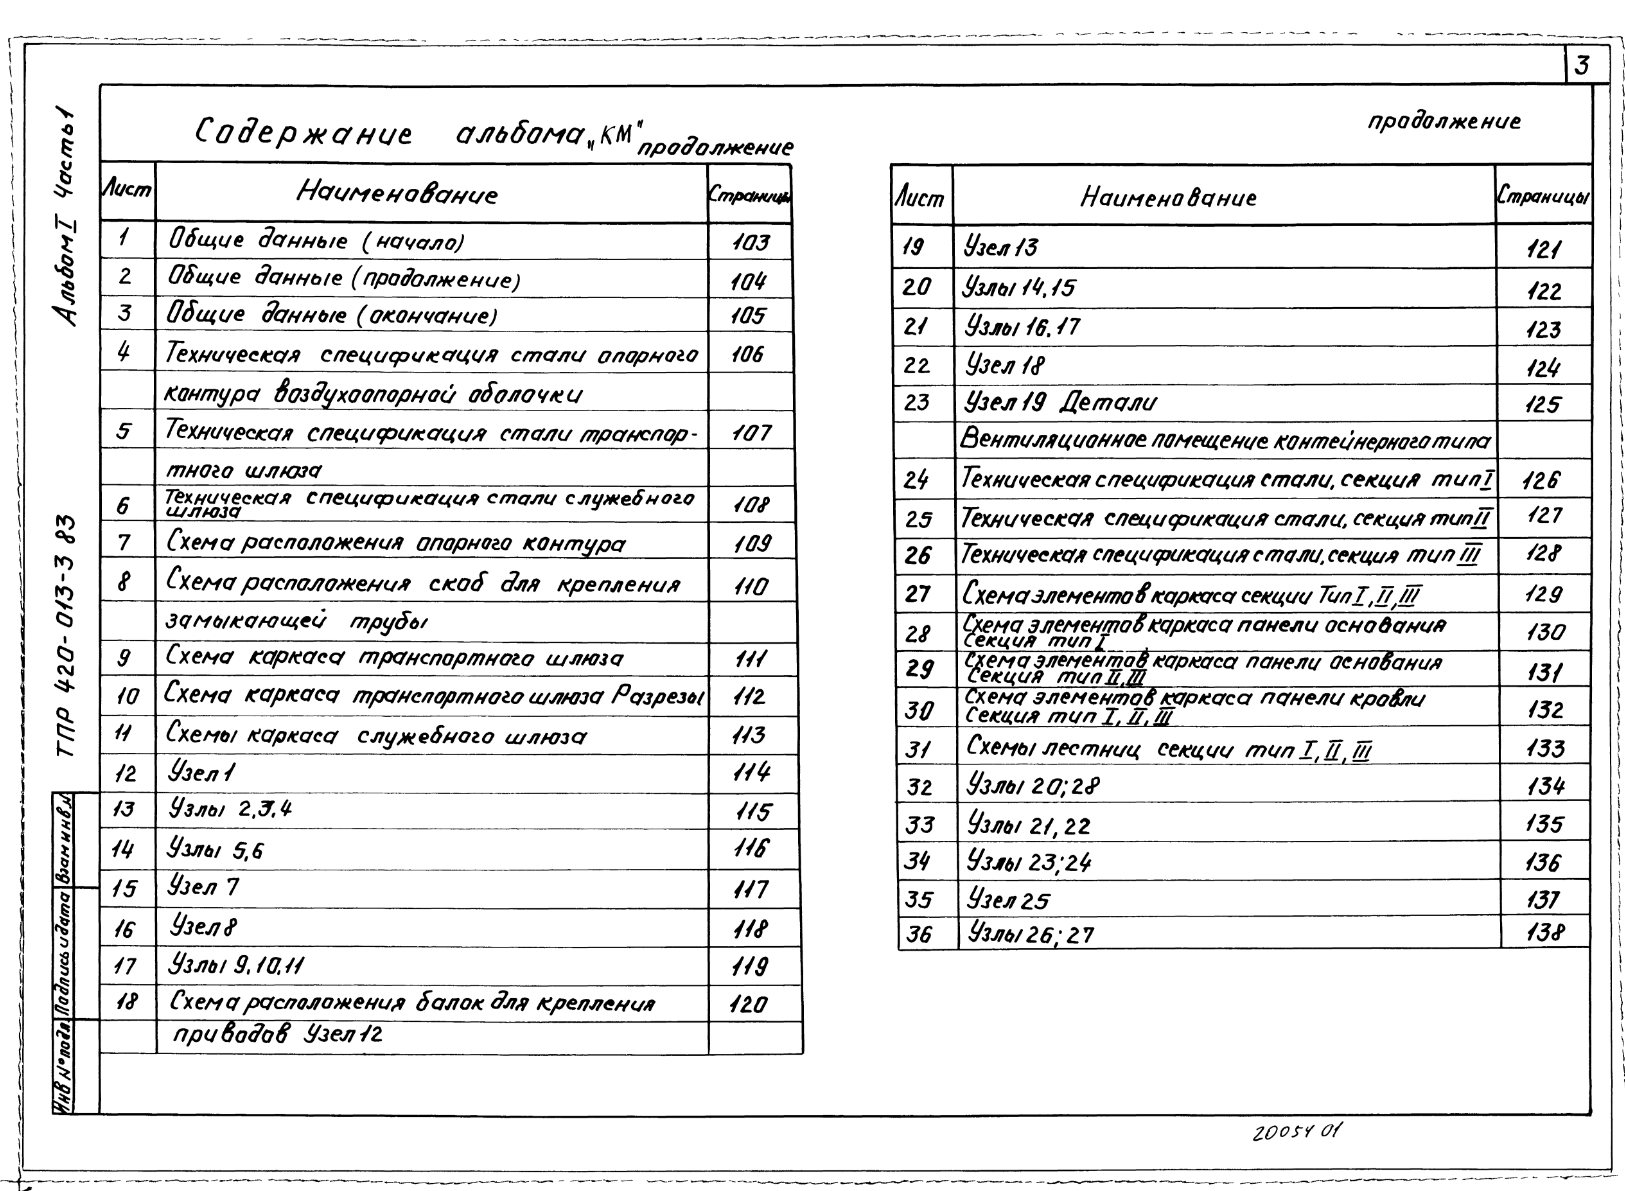 3
Альбом I Часть 1
ТПР 420-013-3 83
Взам инв.N
Подпись и дата
Инв N° подл.
Содержание альбома „КМ" продолжение
Лист Наименование Страницы
1 Общие данные (начало) 103
2 Общие данные (продолжение) 104
3 Общие данные (окончание) 105
4 Техническая спецификация стали опорного 106
контура воздухоопорной оболочки
5 Техническая спецификация стали транспор- 107
тного шлюза
6 Техническая спецификация стали служебного 108
шлюза
7 Схема расположения опорного контура 109
8 Схема расположения скоб для крепления 110
замыкающей трубы
9 Схема каркаса транспортного шлюза 111
10 Схема каркаса транспортного шлюза Разрезы 112
11 Схемы каркаса служебного шлюза 113
12 Узел 1 114
13 Узлы 2,3,4 115
14 Узлы 5,6 116
15 Узел 7 117
16 Узел 8 118
17 Узлы 9,10,11 119
18 Схема расположения балок для крепления 120
приводов Узел 12
продолжение
Лист Наименование Страницы
19 Узел 13 121
20 Узлы 14,15 122
21 Узлы 16,17 123
22 Узел 18 124
23 Узел 19 Детали 125
Вентиляционное помещение контейнерного типа
24 Техническая спецификация стали, секция тип I 126
25 Техническая спецификация стали, секция тип II 127
26 Техническая спецификация стали, секция тип III 128
27 Схема элементов каркаса секции Тип I, II, III 129
28 Схема элементов каркаса панели основания 130
Секция тип I
29 Схема элементов каркаса панели основания 131
Секция тип II, III
30 Схема элементов каркаса панели кровли 132
Секция тип I, II, III
31 Схемы лестниц секции тип I, II, III 133
32 Узлы 20; 28 134
33 Узлы 21, 22 135
34 Узлы 23; 24 136
35 Узел 25 137
36 Узлы 26; 27 138
20054 01